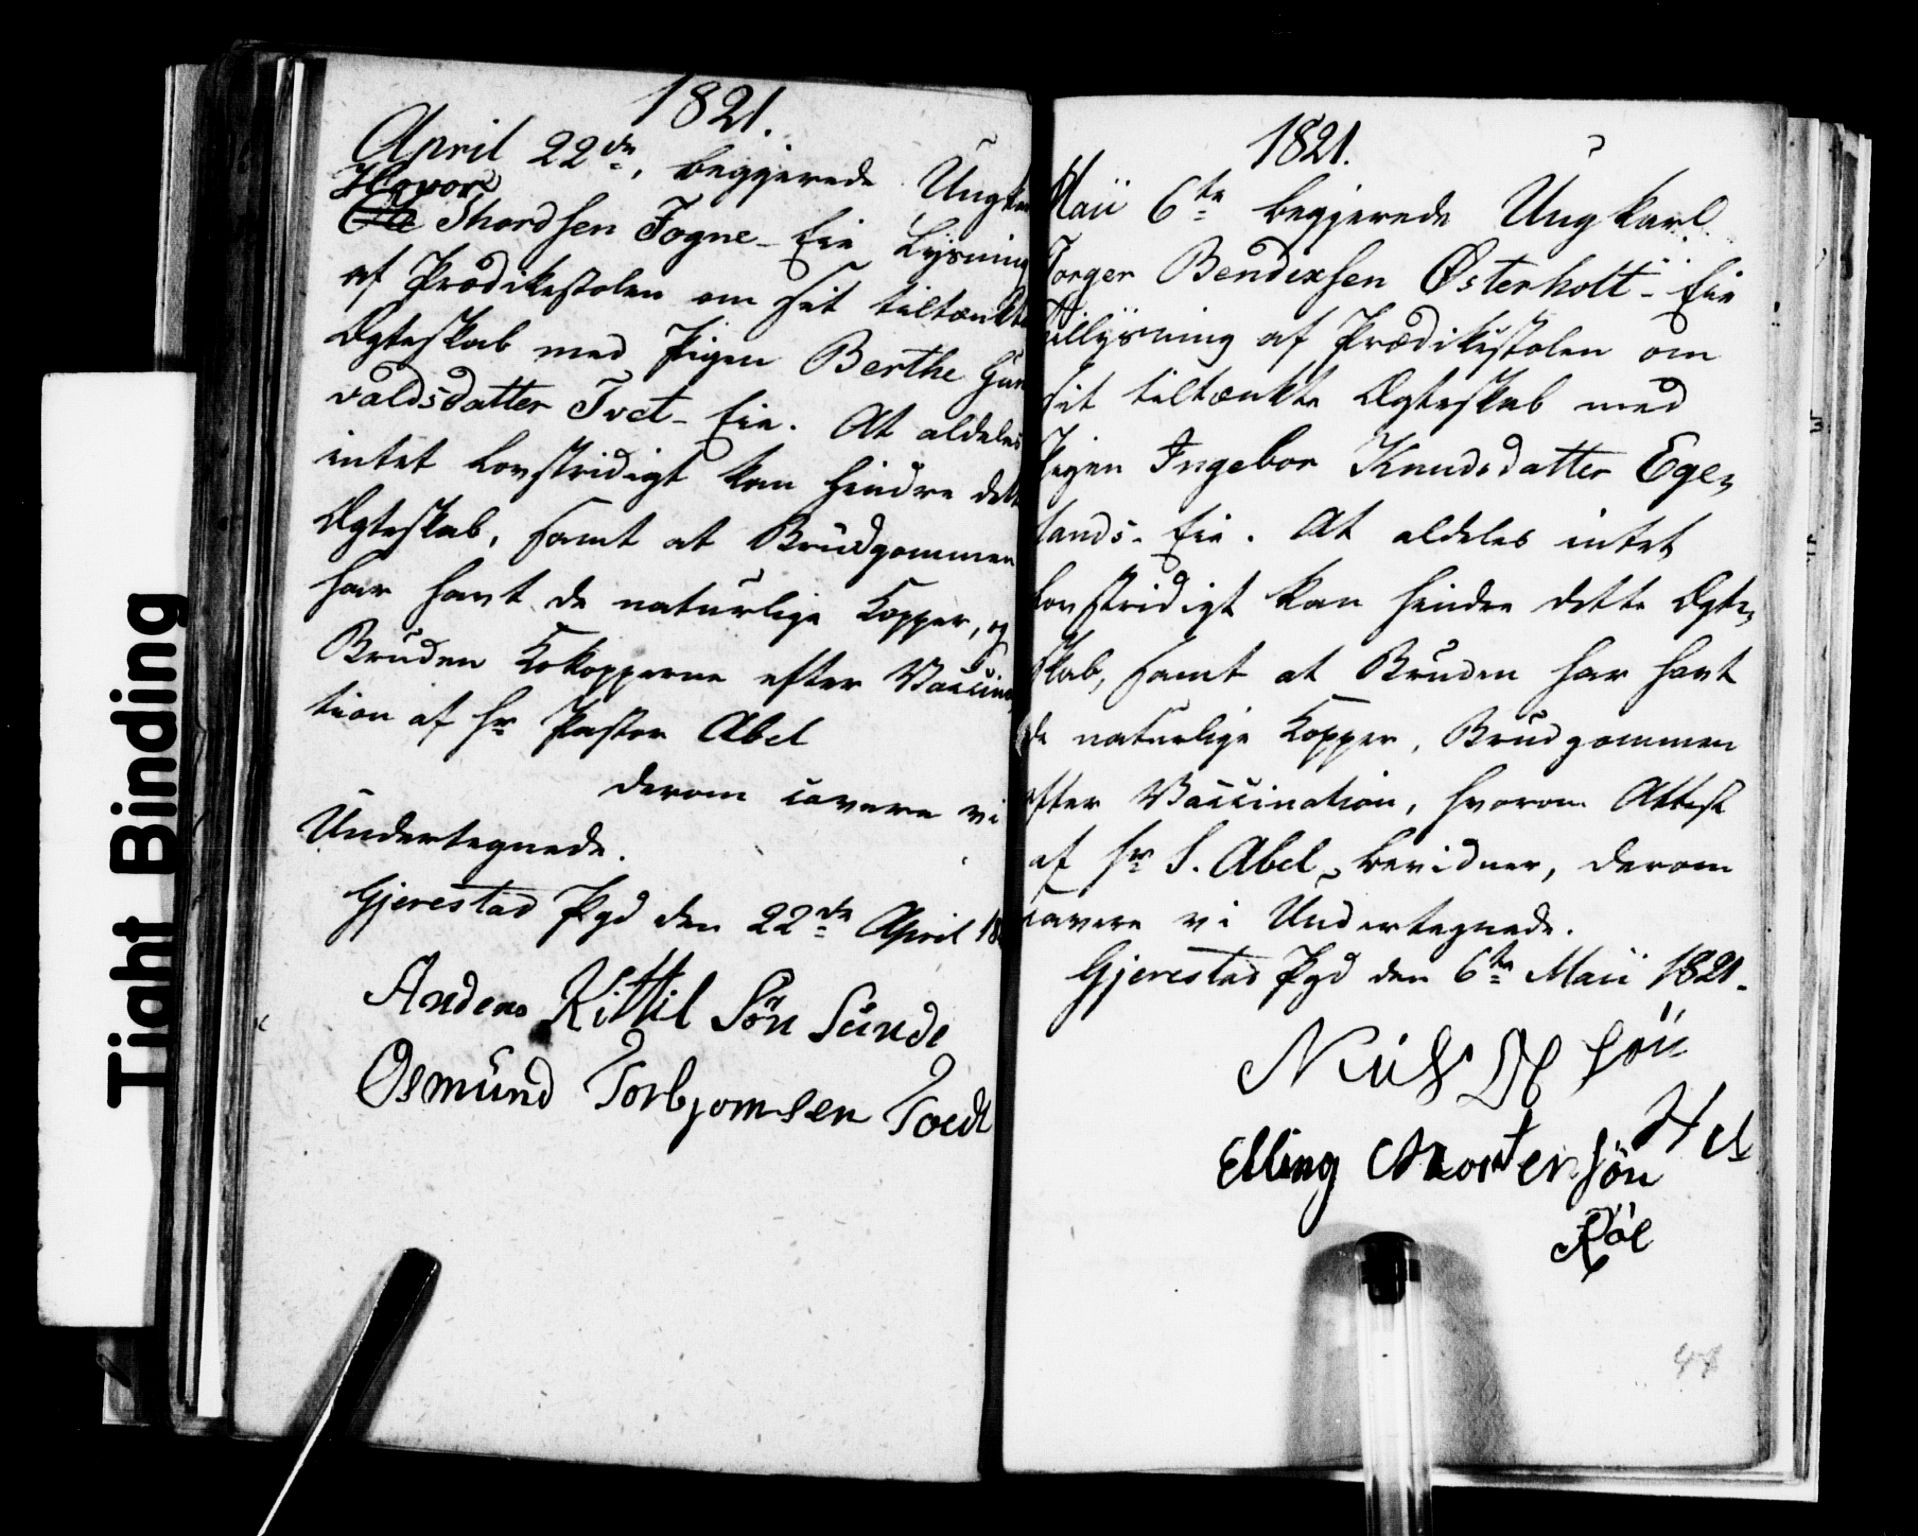 Tight Binding
1821.
April 22de, begjerede Ungka
Havor
Ole Thordsen Fogne-Eie Lysning
af Prædikestolen om sit tiltænkte
Ægteskab med Pigen Berthe Gun
valdsdatter Tvet-Eie. At aldeles
intet Lovstridigt kan hindre dette
Ægteskab, samt at Brudgommen
har havt de naturlige Kopper, og
Bruden Kokopperne efter Vaccina
tion af Hr Pastor Abel
derom cavere vi
Undertegnede.
Gjerestad Pgd den 22de April 18
Anders Kittil Søn Sunde
Osmund Torbjornsen Toedt
1821.
Maii 6te begjerede Ungkarl
Torger Bendixsen Østerholt-Eie
Tillysning af Prædikestolen om
sit tiltænkte Ægteskab med
Pigen Ingebor Knudsdatter Ege,
lands-Eie. At aldeles intet
Lovstridigt kan hindre dette Ægte,
skab, samt at Bruden har havt
de naturlige Kopper, Brudgommen
efter Vaccination, hvorom Attest
af Hr S. Abel bevidner, derom
cavere vi Undertegnede.
Gjerestad Pgd den 6te Maii 1821.
Niels søn
Elling Morten søn
48